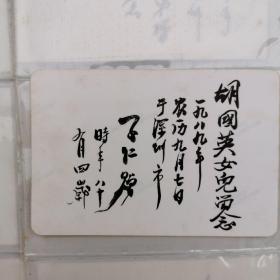 胡國英女史留念
一九八九年
农历九月七日
于深圳市
子仁贈
時年八十
有四歲